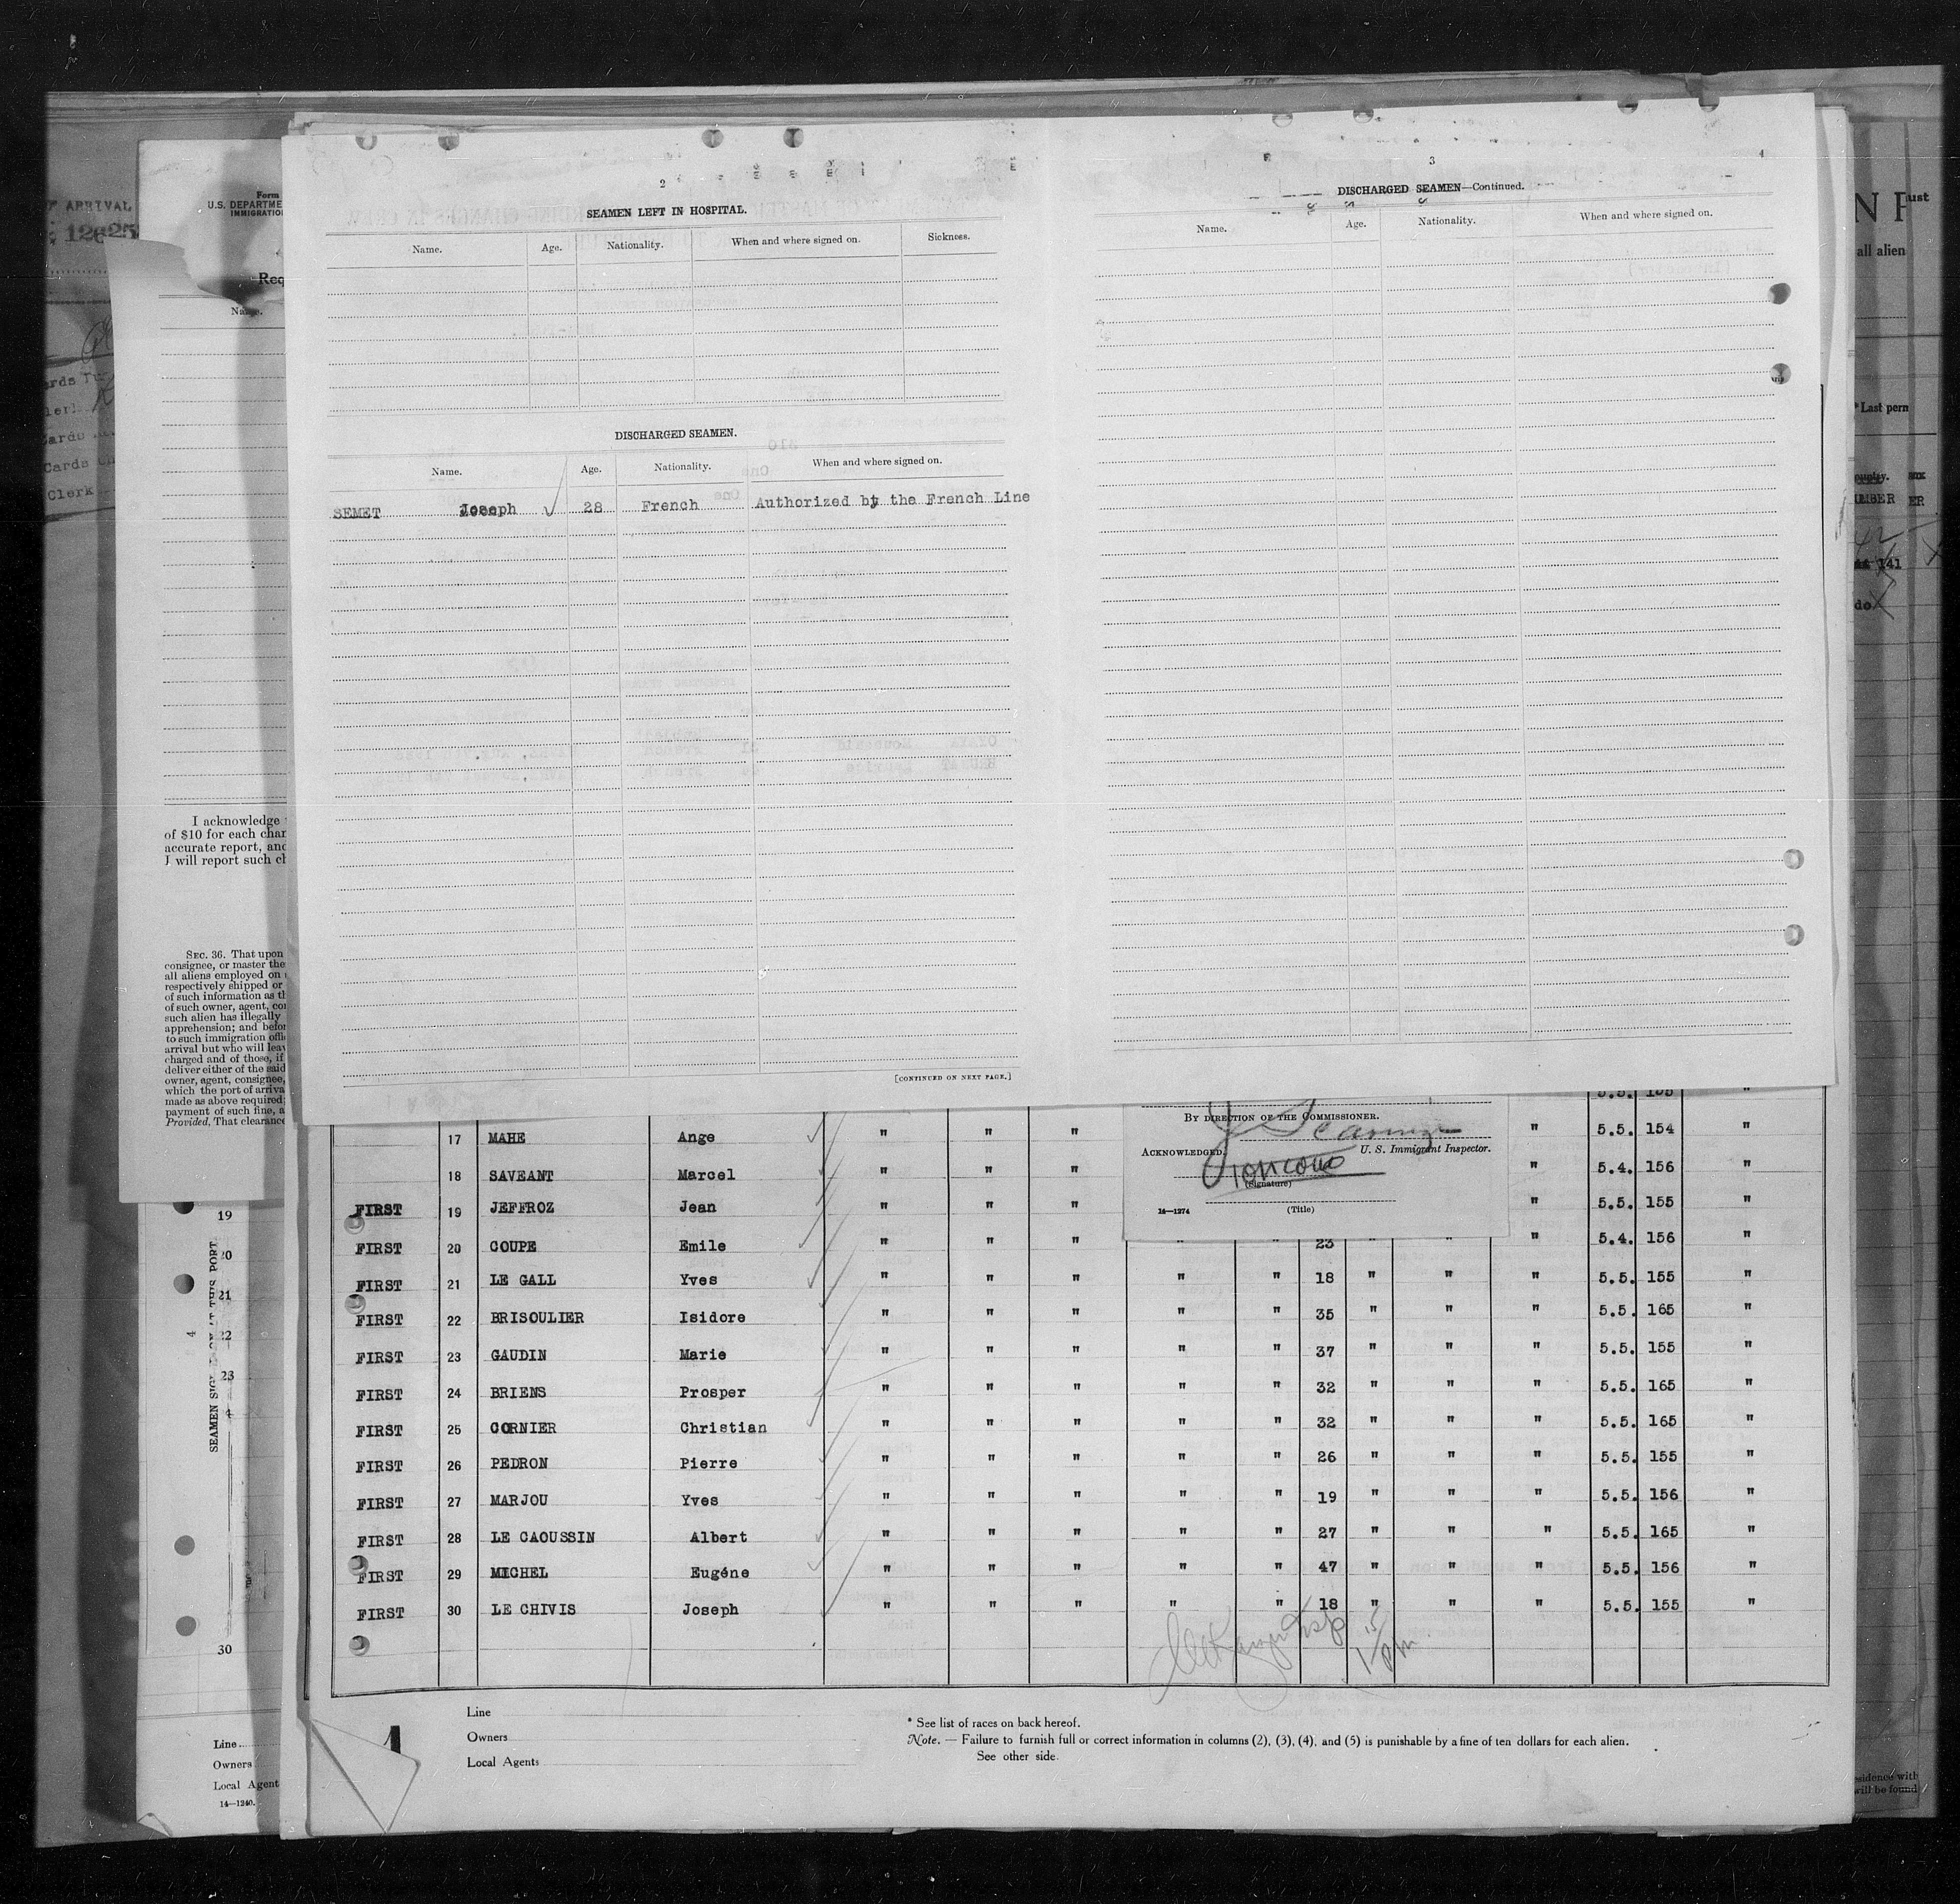 2
SEAMEN LEFT IN HOSPITAL.
Name. Age. Nationality. When and where signed on. Sickness.
DISCHARGED SEAMEN.
Name. Age. Nationality. When and where signed on.
SEMET Joseph 28 French Authorized by the French Line
[CONTINUED ON NEXT PAGE.]
3
DISCHARGED SEAMEN—Continued.
Name. Age. Nationality. When and where signed on.
4
ARRIVAL
Form
U.S. DEPARTME
IMMIGRATIO
Req
Name.
Clerk
Cards
Clerk
I acknowledge
of $10 for each char
accurate report, and
I will report such ch
SEC. 36. That upon
consignee, or master the
all aliens employed on
respectively shipped or
of such information as th
of such owner, agent, con
such alien has illegally
apprehension; and befor
to such immigration offi
arrival but who will leav
charged and of those, if
deliver either of the said
owner, agent, consignee,
which the port of arriva
made as above required
payment of such fine, a
Provided, That clearance
19
20
21
22
23
30
Line
Owners
Local Agent
14—1240.
By direction of the Commissioner.
Acknowledged:
U. S. Immigrant Inspector.
(Signature)
(Title)
14—1274
17 MAHE Ange " " " " 5.5. 154 "
18 SAVEANT Marcel " " " " 5.4. 156 "
FIRST 19 JEFFROZ Jean " " " " 5.5. 155 "
FIRST 20 COUPE Emile " " " " " 23 " " " 5.4. 156 "
FIRST 21 LE GALL Yves " " " " " 18 " " " 5.5. 155 "
FIRST 22 BRISOULIER Isidore " " " " " 35 " " " 5.5. 165 "
FIRST 23 GAUDIN Marie " " " " " 37 " " " 5.5. 155 "
FIRST 24 BRIENS Prosper " " " " " 32 " " " 5.5. 165 "
FIRST 25 CORNIER Christian " " " " " 32 " " " 5.5. 165 "
FIRST 26 PEDRON Pierre " " " " " 26 " " " 5.5. 155 "
FIRST 27 MARJOU Yves " " " " " 19 " " " 5.5. 156 "
FIRST 28 LE CAOUSSIN Albert " " " " " 27 " " " 5.5. 165 "
FIRST 29 MICHEL Eugéne " " " " " 47 " " " 5.5. 156 "
FIRST 30 LE CHIVIS Joseph " " " " " 18 " " " 5.5. 155 "
Line
Owners
Local Agents
* See list of races on back hereof.
Note. — Failure to furnish full or correct information in columns (2), (3), (4), and (5) is punishable by a fine of ten dollars for each alien.
See other side.
all alien
*Last pern
141
do
sidence with
will be found